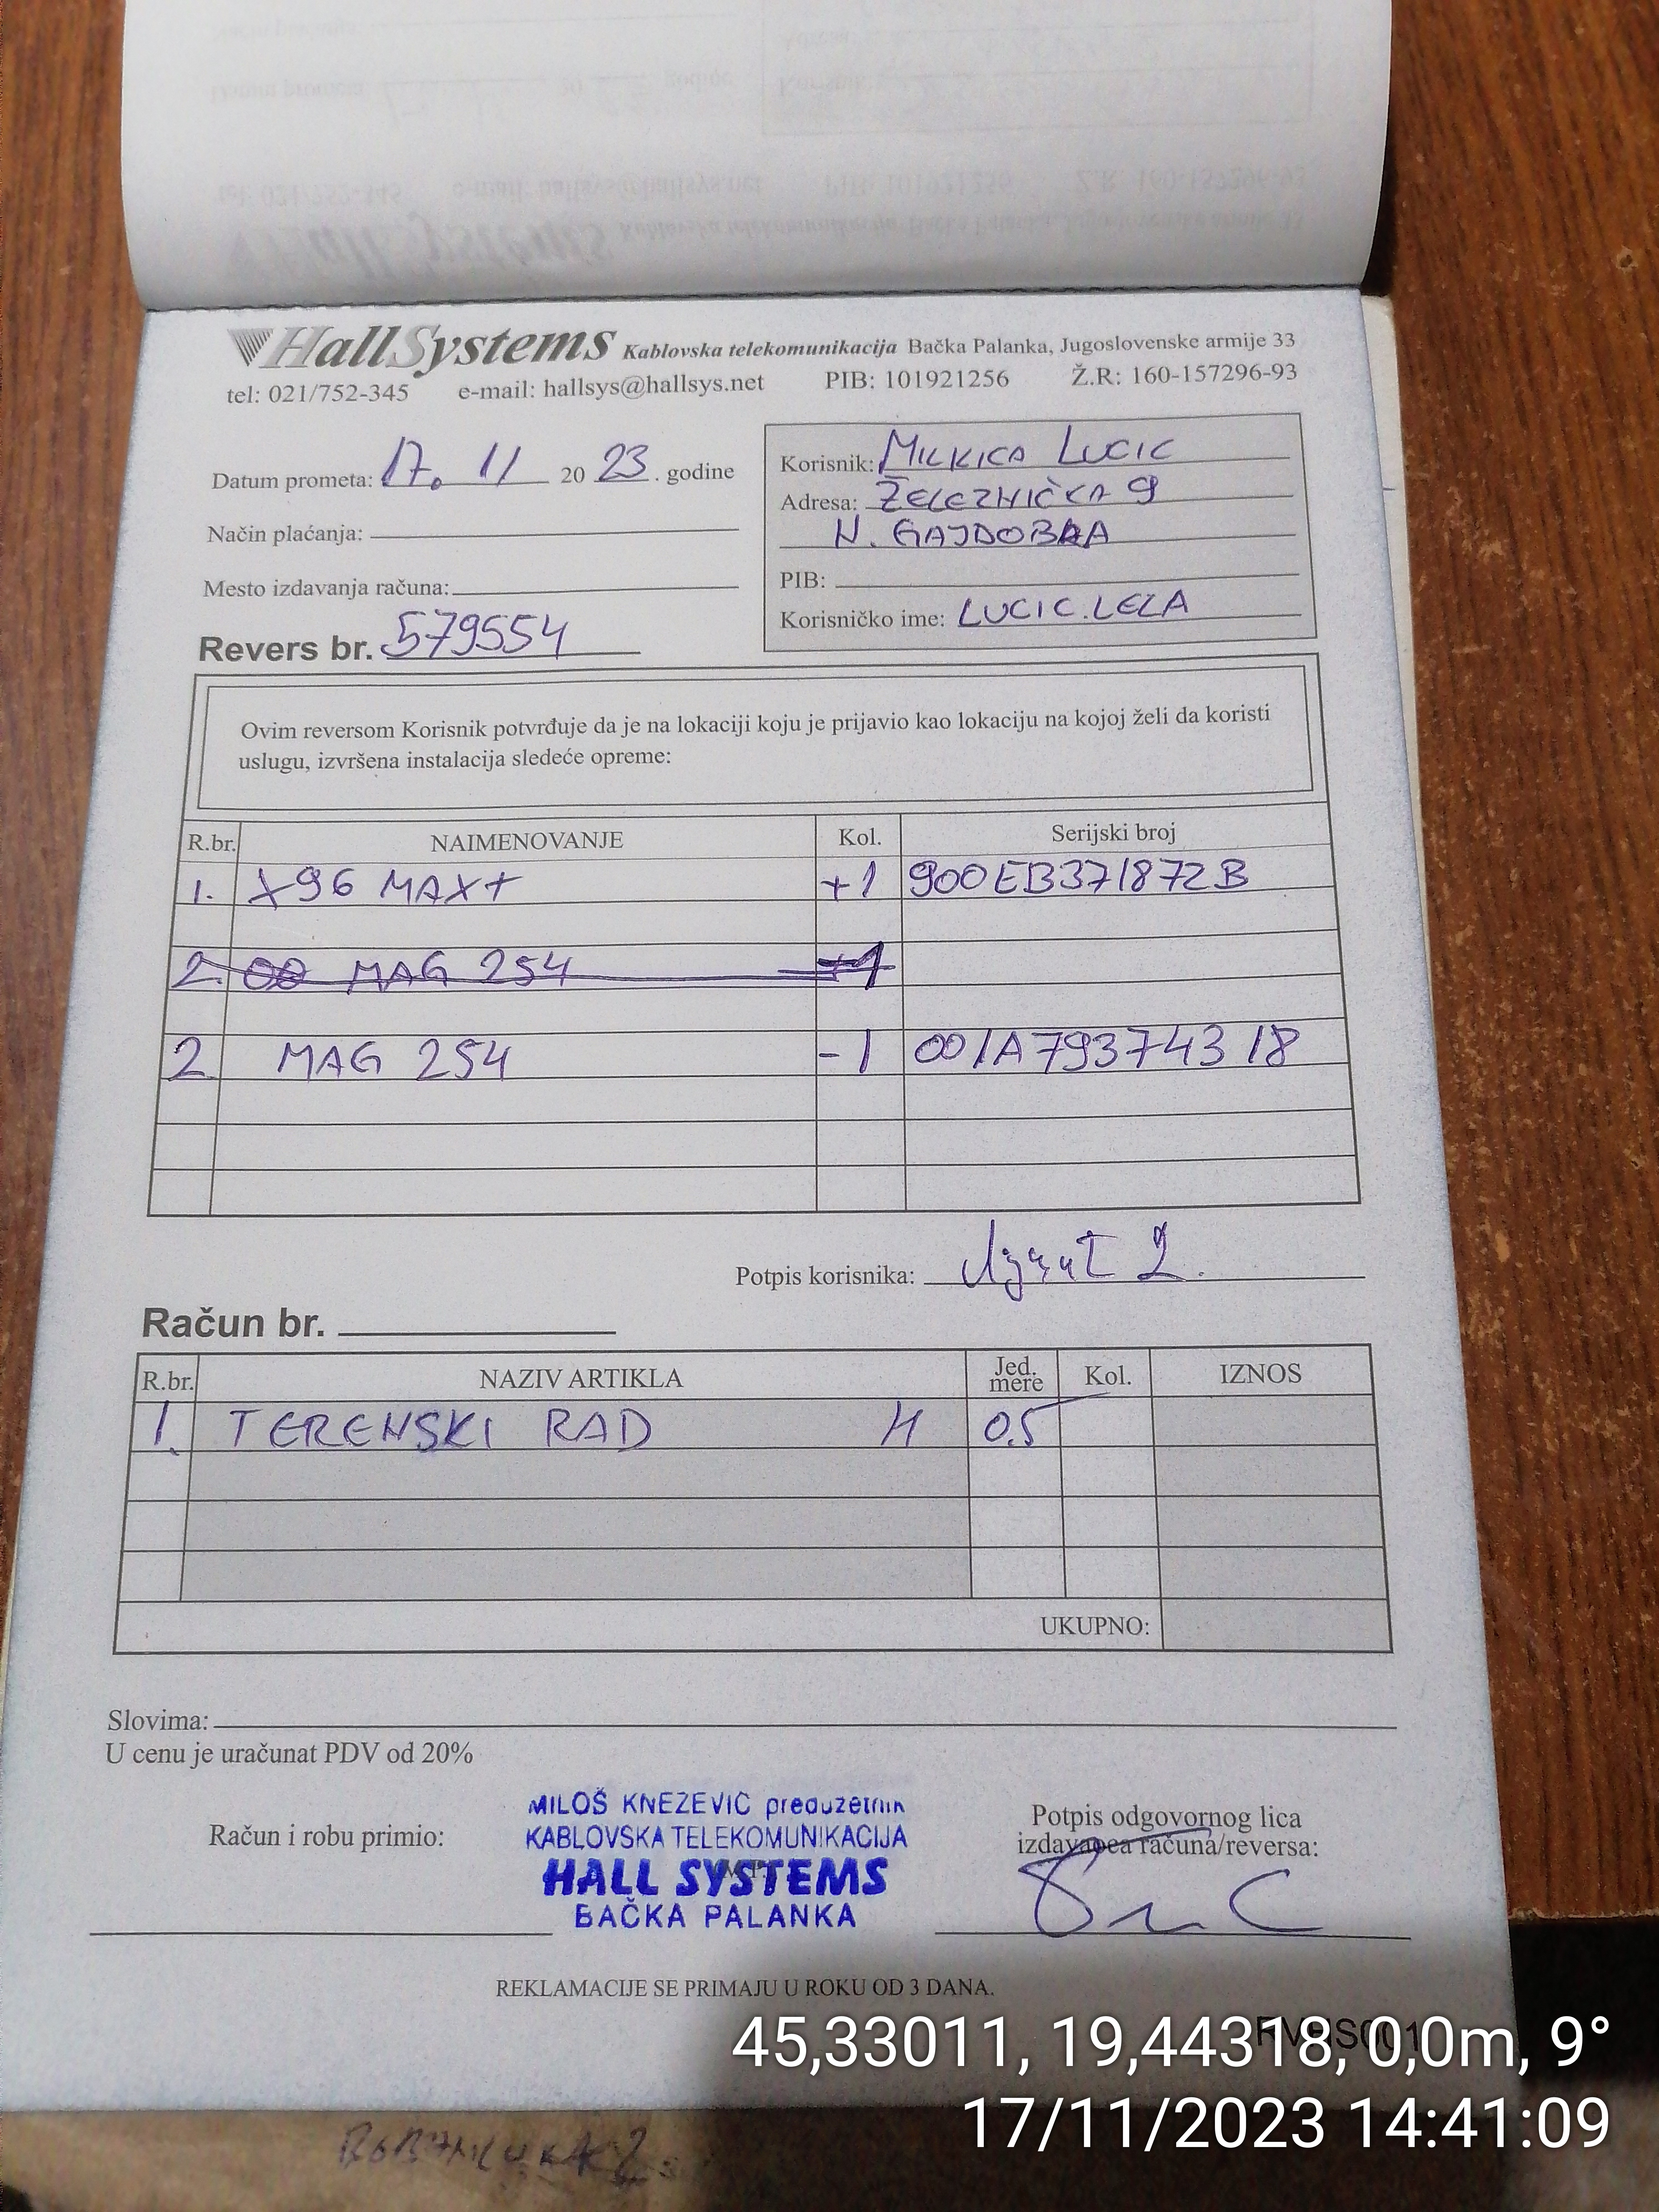 HallSystems Kablovska telekomunikacija Bačka Palanka, Jugoslovenske armije 33
tel: 021/752-345 e-mail: hallsys@hallsys.net PIB: 101921256 Ž.R: 160-157296-93
Datum prometa: 17. 11 20 23. godine
Način plaćanja:
Mesto izdavanja računa:
Revers br. 579554
Korisnik: MILKICA LUCIC
Adresa: ŽELEZNIČKA 9
N. GAJDOBRA
PIB:
Korisničko ime: LUCIC.LELA
Ovim reversom Korisnik potvrđuje da je na lokaciji koju je prijavio kao lokaciju na kojoj želi da koristi
uslugu, izvršena instalacija sledeće opreme:
R.br. NAIMENOVANJE Kol. Serijski broj
1. X96 MAX+ +1 900EB371872B
2. 00 MAG 254 +1
2 MAG 254 -1 001A79374318
Potpis korisnika:
Račun br.
R.br. NAZIV ARTIKLA Jed. mere Kol. IZNOS
1. TERENSKI RAD H 0.5
UKUPNO:
Slovima:
U cenu je uračunat PDV od 20%
Račun i robu primio:
MILOŠ KNEZEVIĆ preduzetnik
KABLOVSKA TELEKOMUNIKACIJA
HALL SYSTEMS
BAČKA PALANKA
Potpis odgovornog lica
izdavaoca računa/reversa:
REKLAMACIJE SE PRIMAJU U ROKU OD 3 DANA.
45,33011, 19,44318, 0,0m, 9°
17/11/2023 14:41:09